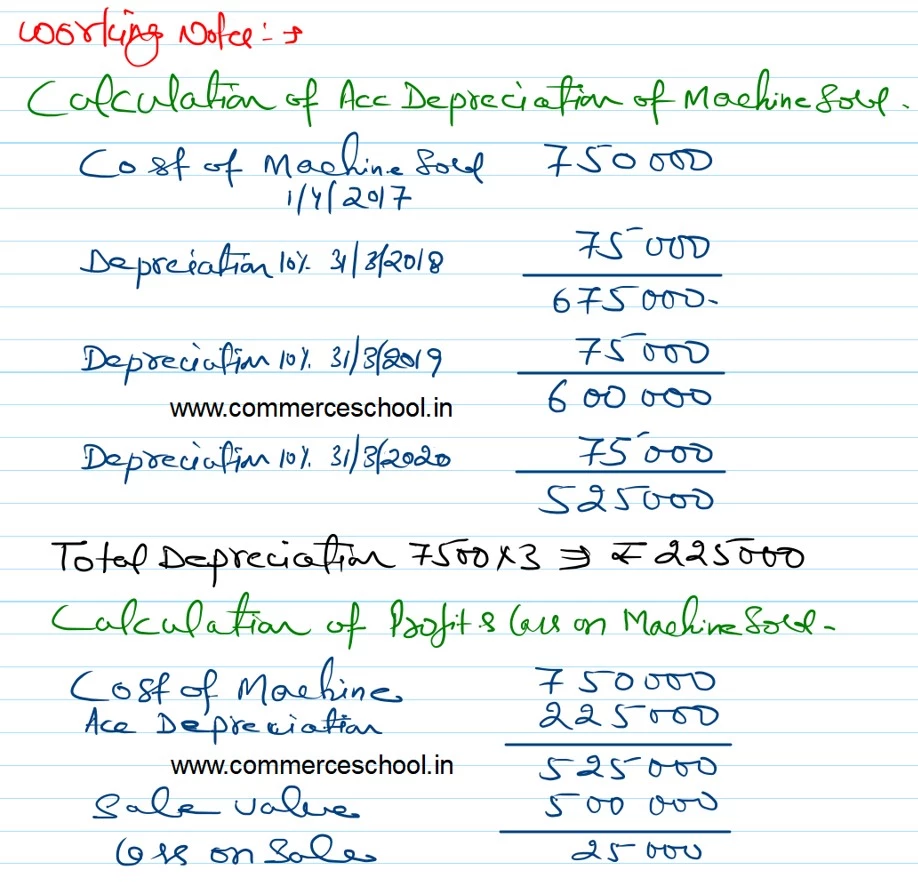 Working Note:→
Calculation of Acc Depreciation of Machine Sold.
Cost of Machine Sold 750000
1/4/2017
Depreciation 10% 31/3/2018 75000
675000-
Depreciation 10% 31/3/2019 75000
www.commerceschool.in 600000
Depreciation 10% 31/3/2020 75000
525000
Total Depreciation 7500×3 ⇒ ₹225000
Calculation of Profit & Loss on Machine Sold-
Cost of Machine 750000
Acc Depreciation 225000
www.commerceschool.in 525000
Sale value 500000
Loss on Sale 25000